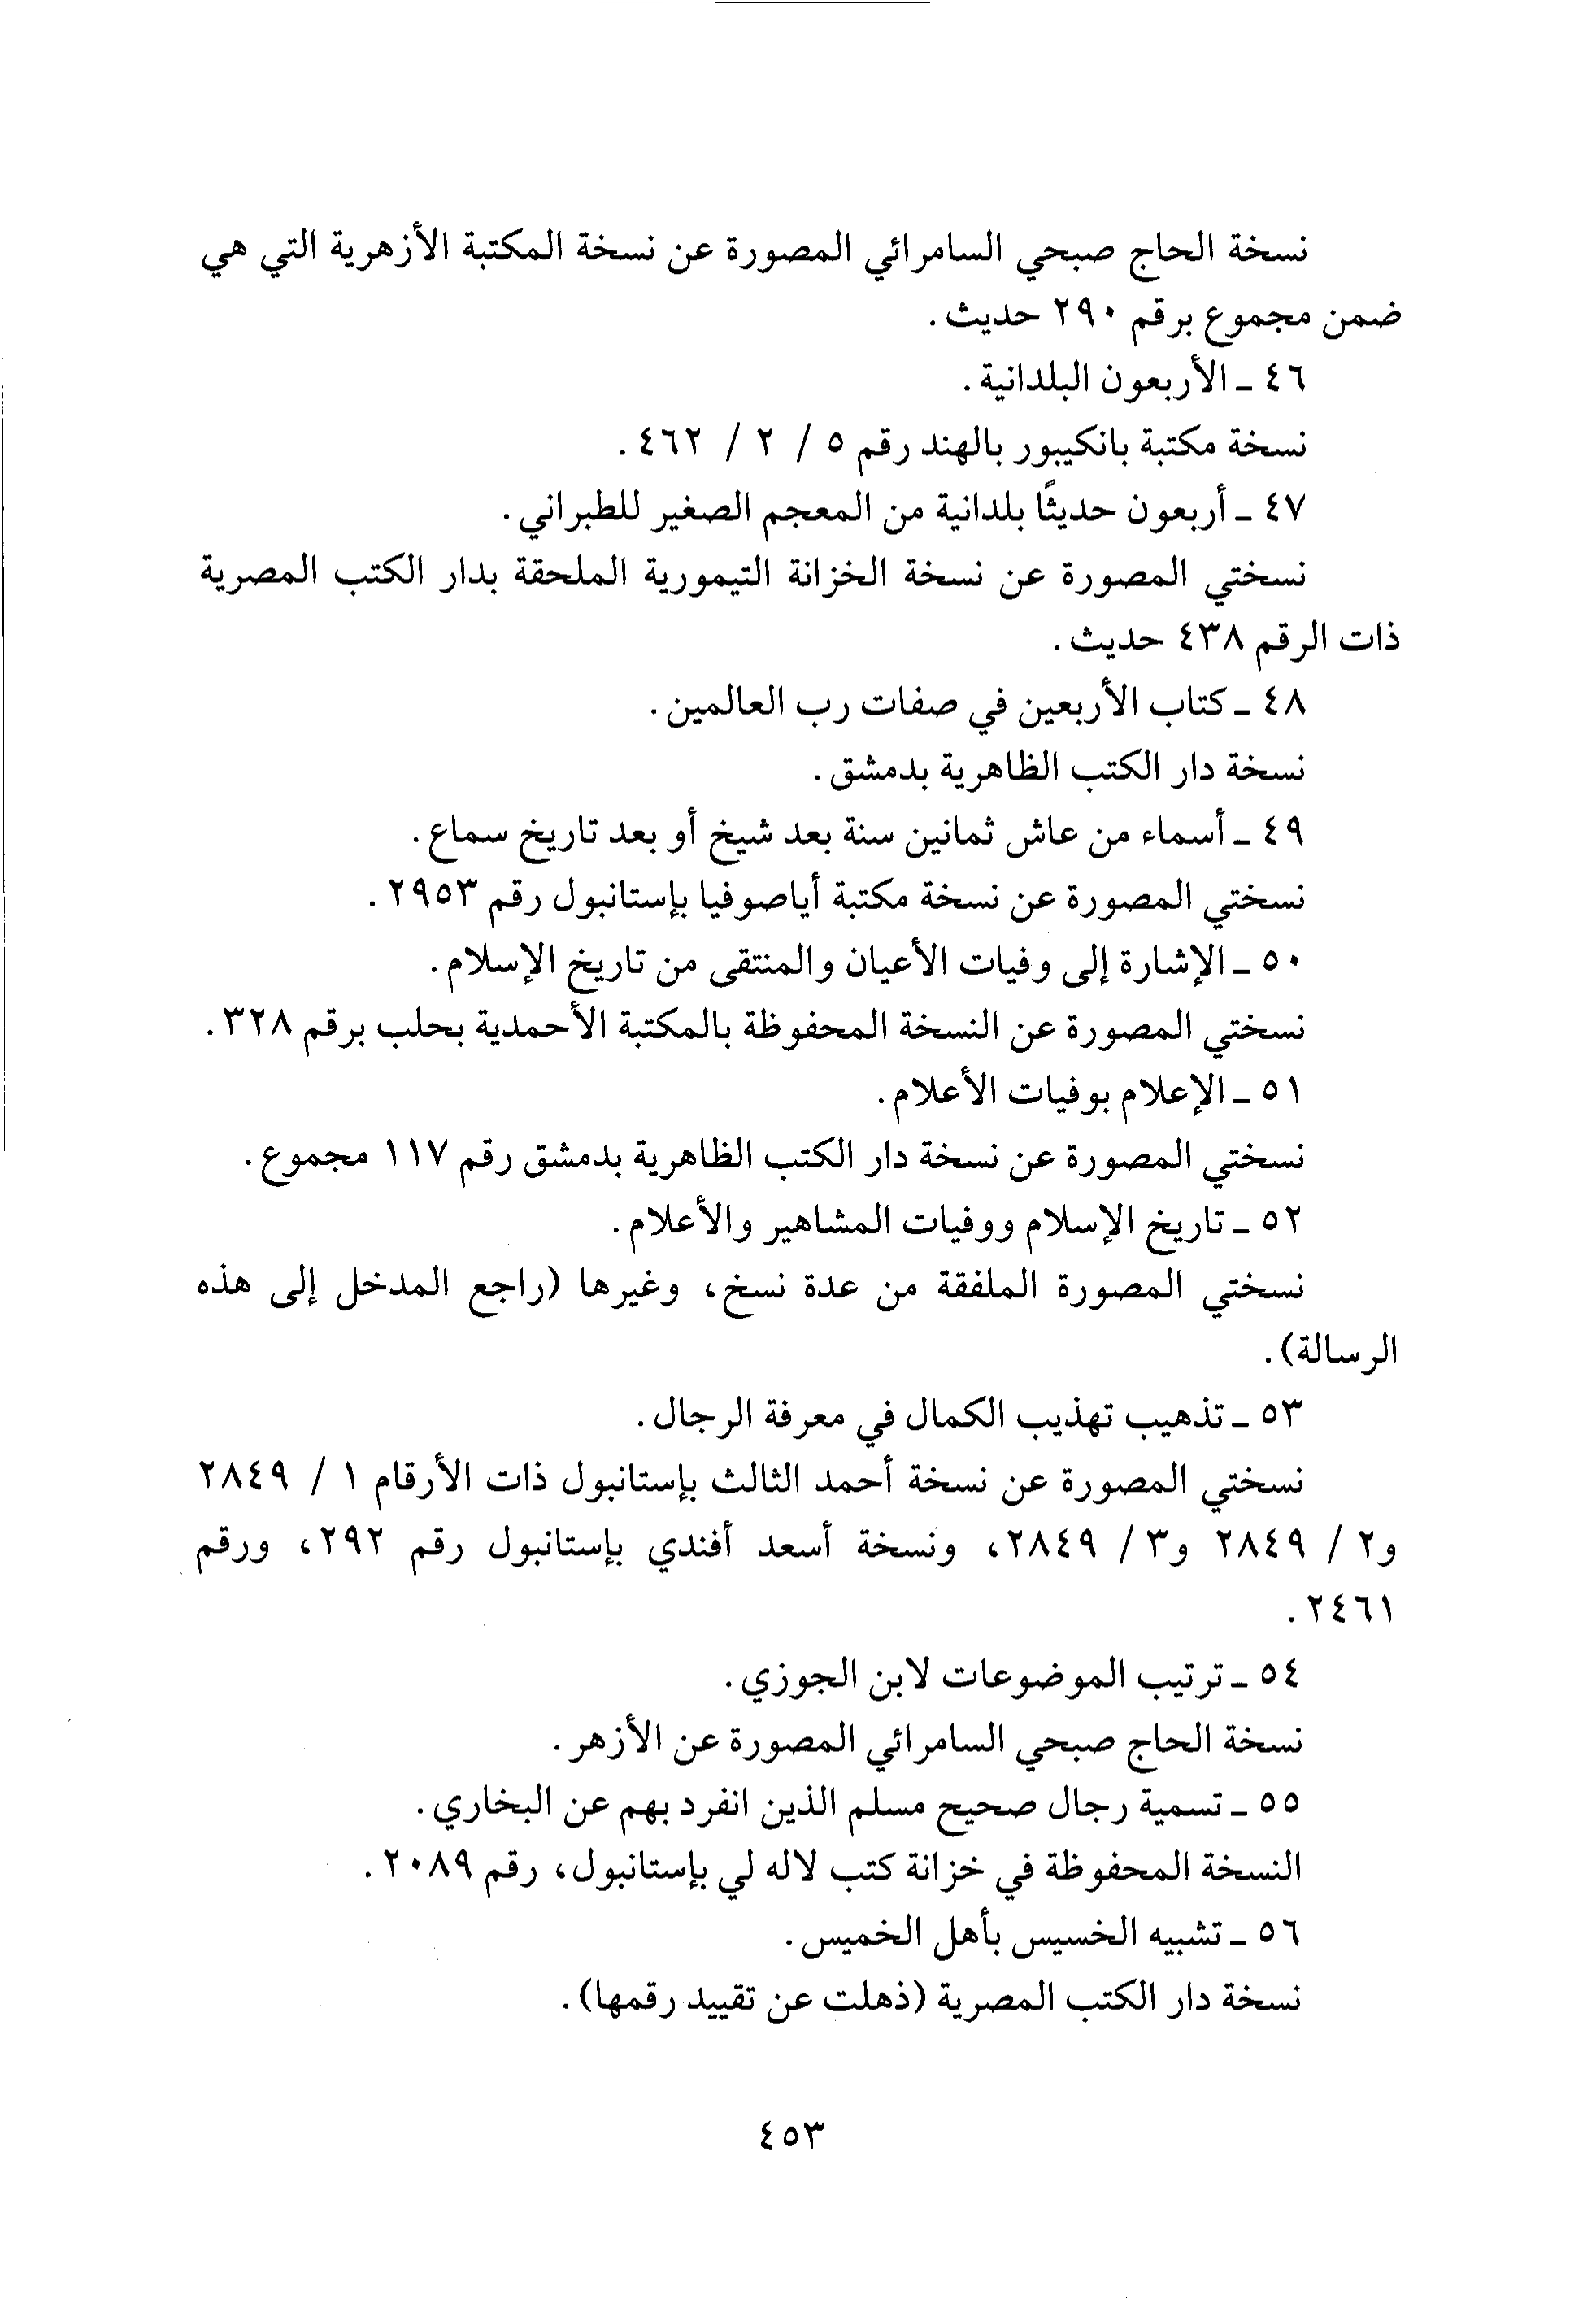 نسخة الحاج صبحي السامرائي المصورة عن نسخة المكتبة الأزهرية التي هي
ضمن مجموع برقم ٢٩٠ حديث.
٤٦ ـ الأربعون البلدانية.
نسخة مكتبة بانكيبور بالهند رقم ٥ / ٢ / ٤٦٢.
٤٧ ـ أربعون حديثًا بلدانية من المعجم الصغير للطبراني.
نسختي المصورة عن نسخة الخزانة التيمورية الملحقة بدار الكتب المصرية
ذات الرقم ٤٣٨ حديث.
٤٨ ـ كتاب الأربعين في صفات رب العالمين.
نسخة دار الكتب الظاهرية بدمشق.
٤٩ ـ أسماء من عاش ثمانين سنة بعد شيخ أو بعد تاريخ سماع.
نسختي المصورة عن نسخة مكتبة أياصوفيا بإستانبول رقم ٢٩٥٣.
٥٠ ـ الإشارة إلى وفيات الأعيان والمنتقى من تاريخ الإسلام.
نسختي المصورة عن النسخة المحفوظة بالمكتبة الأحمدية بحلب برقم ٣٢٨.
٥١ ـ الإعلام بوفيات الأعلام.
نسختي المصورة عن نسخة دار الكتب الظاهرية بدمشق رقم ١١٧ مجموع.
٥٢ ـ تاريخ الإسلام ووفيات المشاهير والأعلام.
نسختي المصورة الملفقة من عدة نسخ، وغيرها (راجع المدخل إلى هذه
الرسالة).
٥٣ ـ تذهيب تهذيب الكمال في معرفة الرجال.
نسختي المصورة عن نسخة أحمد الثالث بإستانبول ذات الأرقام ١ / ٢٨٤٩
و٢ / ٢٨٤٩ و٣ / ٢٨٤٩، ونسخة أسعد أفندي بإستانبول رقم ٢٩٢، ورقم
٢٤٦١.
٥٤ ـ ترتيب الموضوعات لابن الجوزي.
نسخة الحاج صبحي السامرائي المصورة عن الأزهر.
٥٥ ـ تسمية رجال صحيح مسلم الذين انفرد بهم عن البخاري.
النسخة المحفوظة في خزانة كتب لاله لي بإستانبول، رقم ٢٠٨٩.
٥٦ ـ تشبيه الخسيس بأهل الخميس.
نسخة دار الكتب المصرية (ذهلت عن تقييد رقمها).
٤٥٣